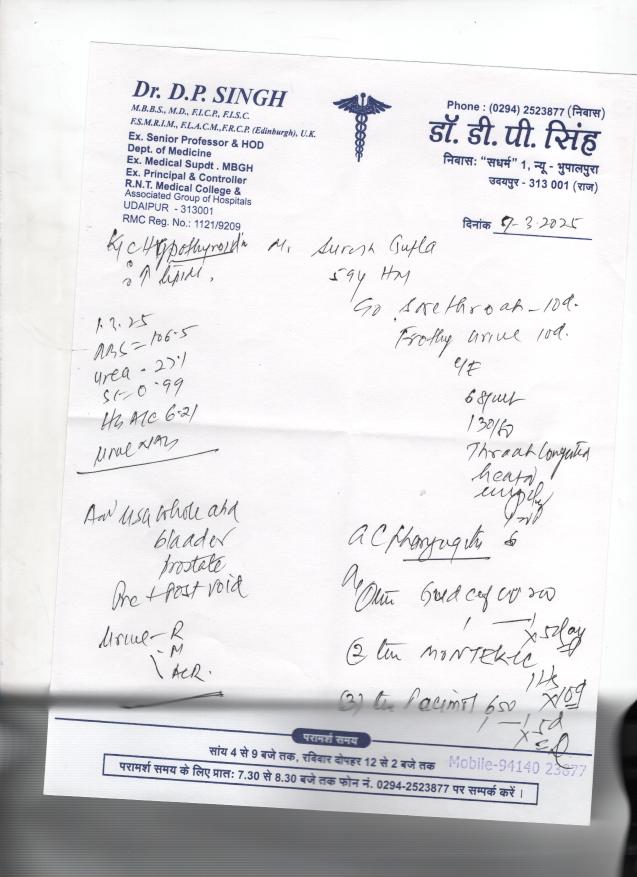 Dr. D.P. SINGH
M.B.B.S., M.D., F.I.C.P., F.I.S.C.
F.S.M.R.I.M., F.L.A.C.M.,F.R.C.P. (Edinburgh), U.K.
Ex. Senior Professor & HOD
Dept. of Medicine
Ex. Medical Supdt . MBGH
Ex. Principal & Controller
R.N.T. Medical College &
Associated Group of Hospitals
UDAIPUR - 313001
RMC Reg. No.: 1121/9209
Phone : (0294) 2523877 (निवास)
डॉ. डी. पी. सिंह
निवास: “सधर्म” 1, न्यू - भुपालपुरा
उदयपुर - 313 001 (राज)
दिनांक 9-3-2025
K/C Hypothyroidin
↑ lipid,
Mr. Suresh Gupta
59y
1.3.25
RBS = 106.5
urea - 27.1
Sr = 0.99
HbA1C 6.21
Urine
C/o Sorethroat - 10d.
Frothy urine 10d.
O/E
68/mt
130/80
Throat Congested
heart
Adv USG whole abd
bladder
prostate
Pre + Post void
Urine - R
M
ACR.
AC Pharyngitis
cef 200
1 — 1
x 5 day
② MONTEK LC
1 HS x 10d
(3) Pacimol 650
1 — 1
x 5d
परामर्श समय
सांय 4 से 9 बजे तक, रविवार दोपहर 12 से 2 बजे तक
Mobile-94140 23877
परामर्श समय के लिए प्रातः 7.30 से 8.30 बजे तक फोन नं. 0294-2523877 पर सम्पर्क करें ।